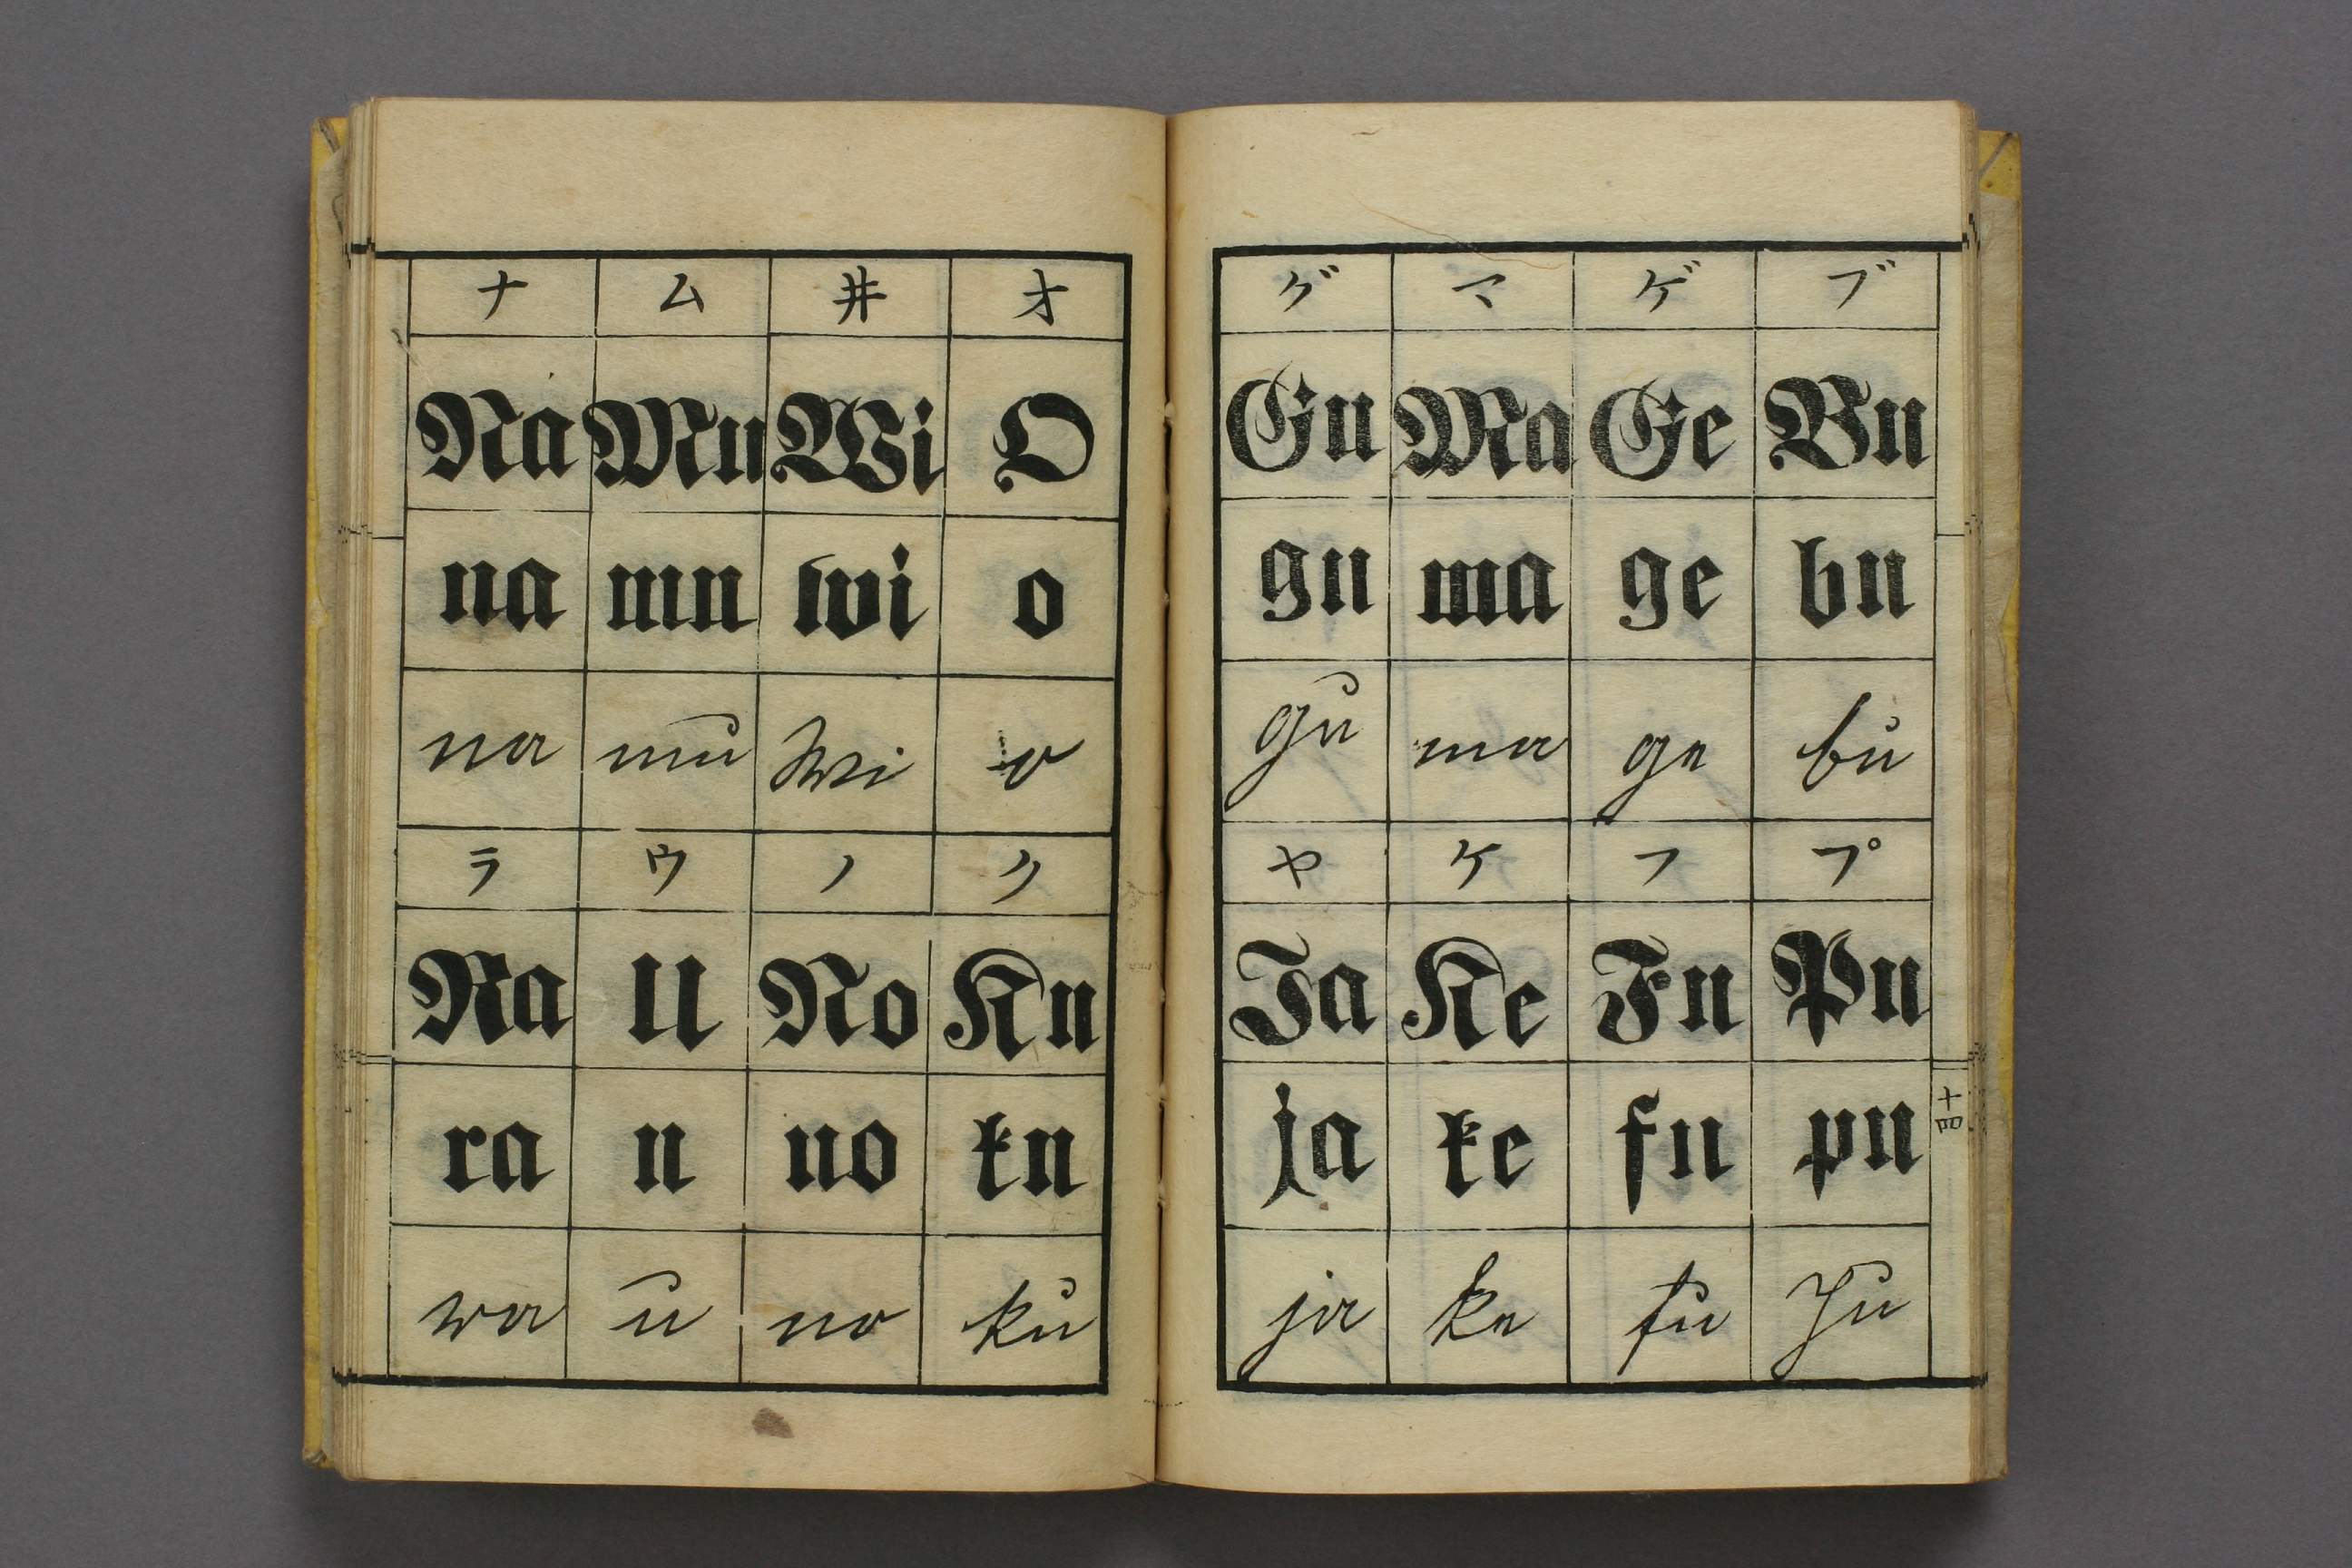 ナ ム 井 オ
Na Mu Wi O
na mu wi o
na mu wi o
ラ ウ ノ ク
Ra U No Ku
ra u no ku
ra u no ku
グ マ ゲ ブ
Gu Ma Ge Bu
gu ma ge bu
gu ma ge bu
ヤ ケ フ プ
Ja Ke Fu Pu
ja ke fu pu
ja ke fu pu
十四